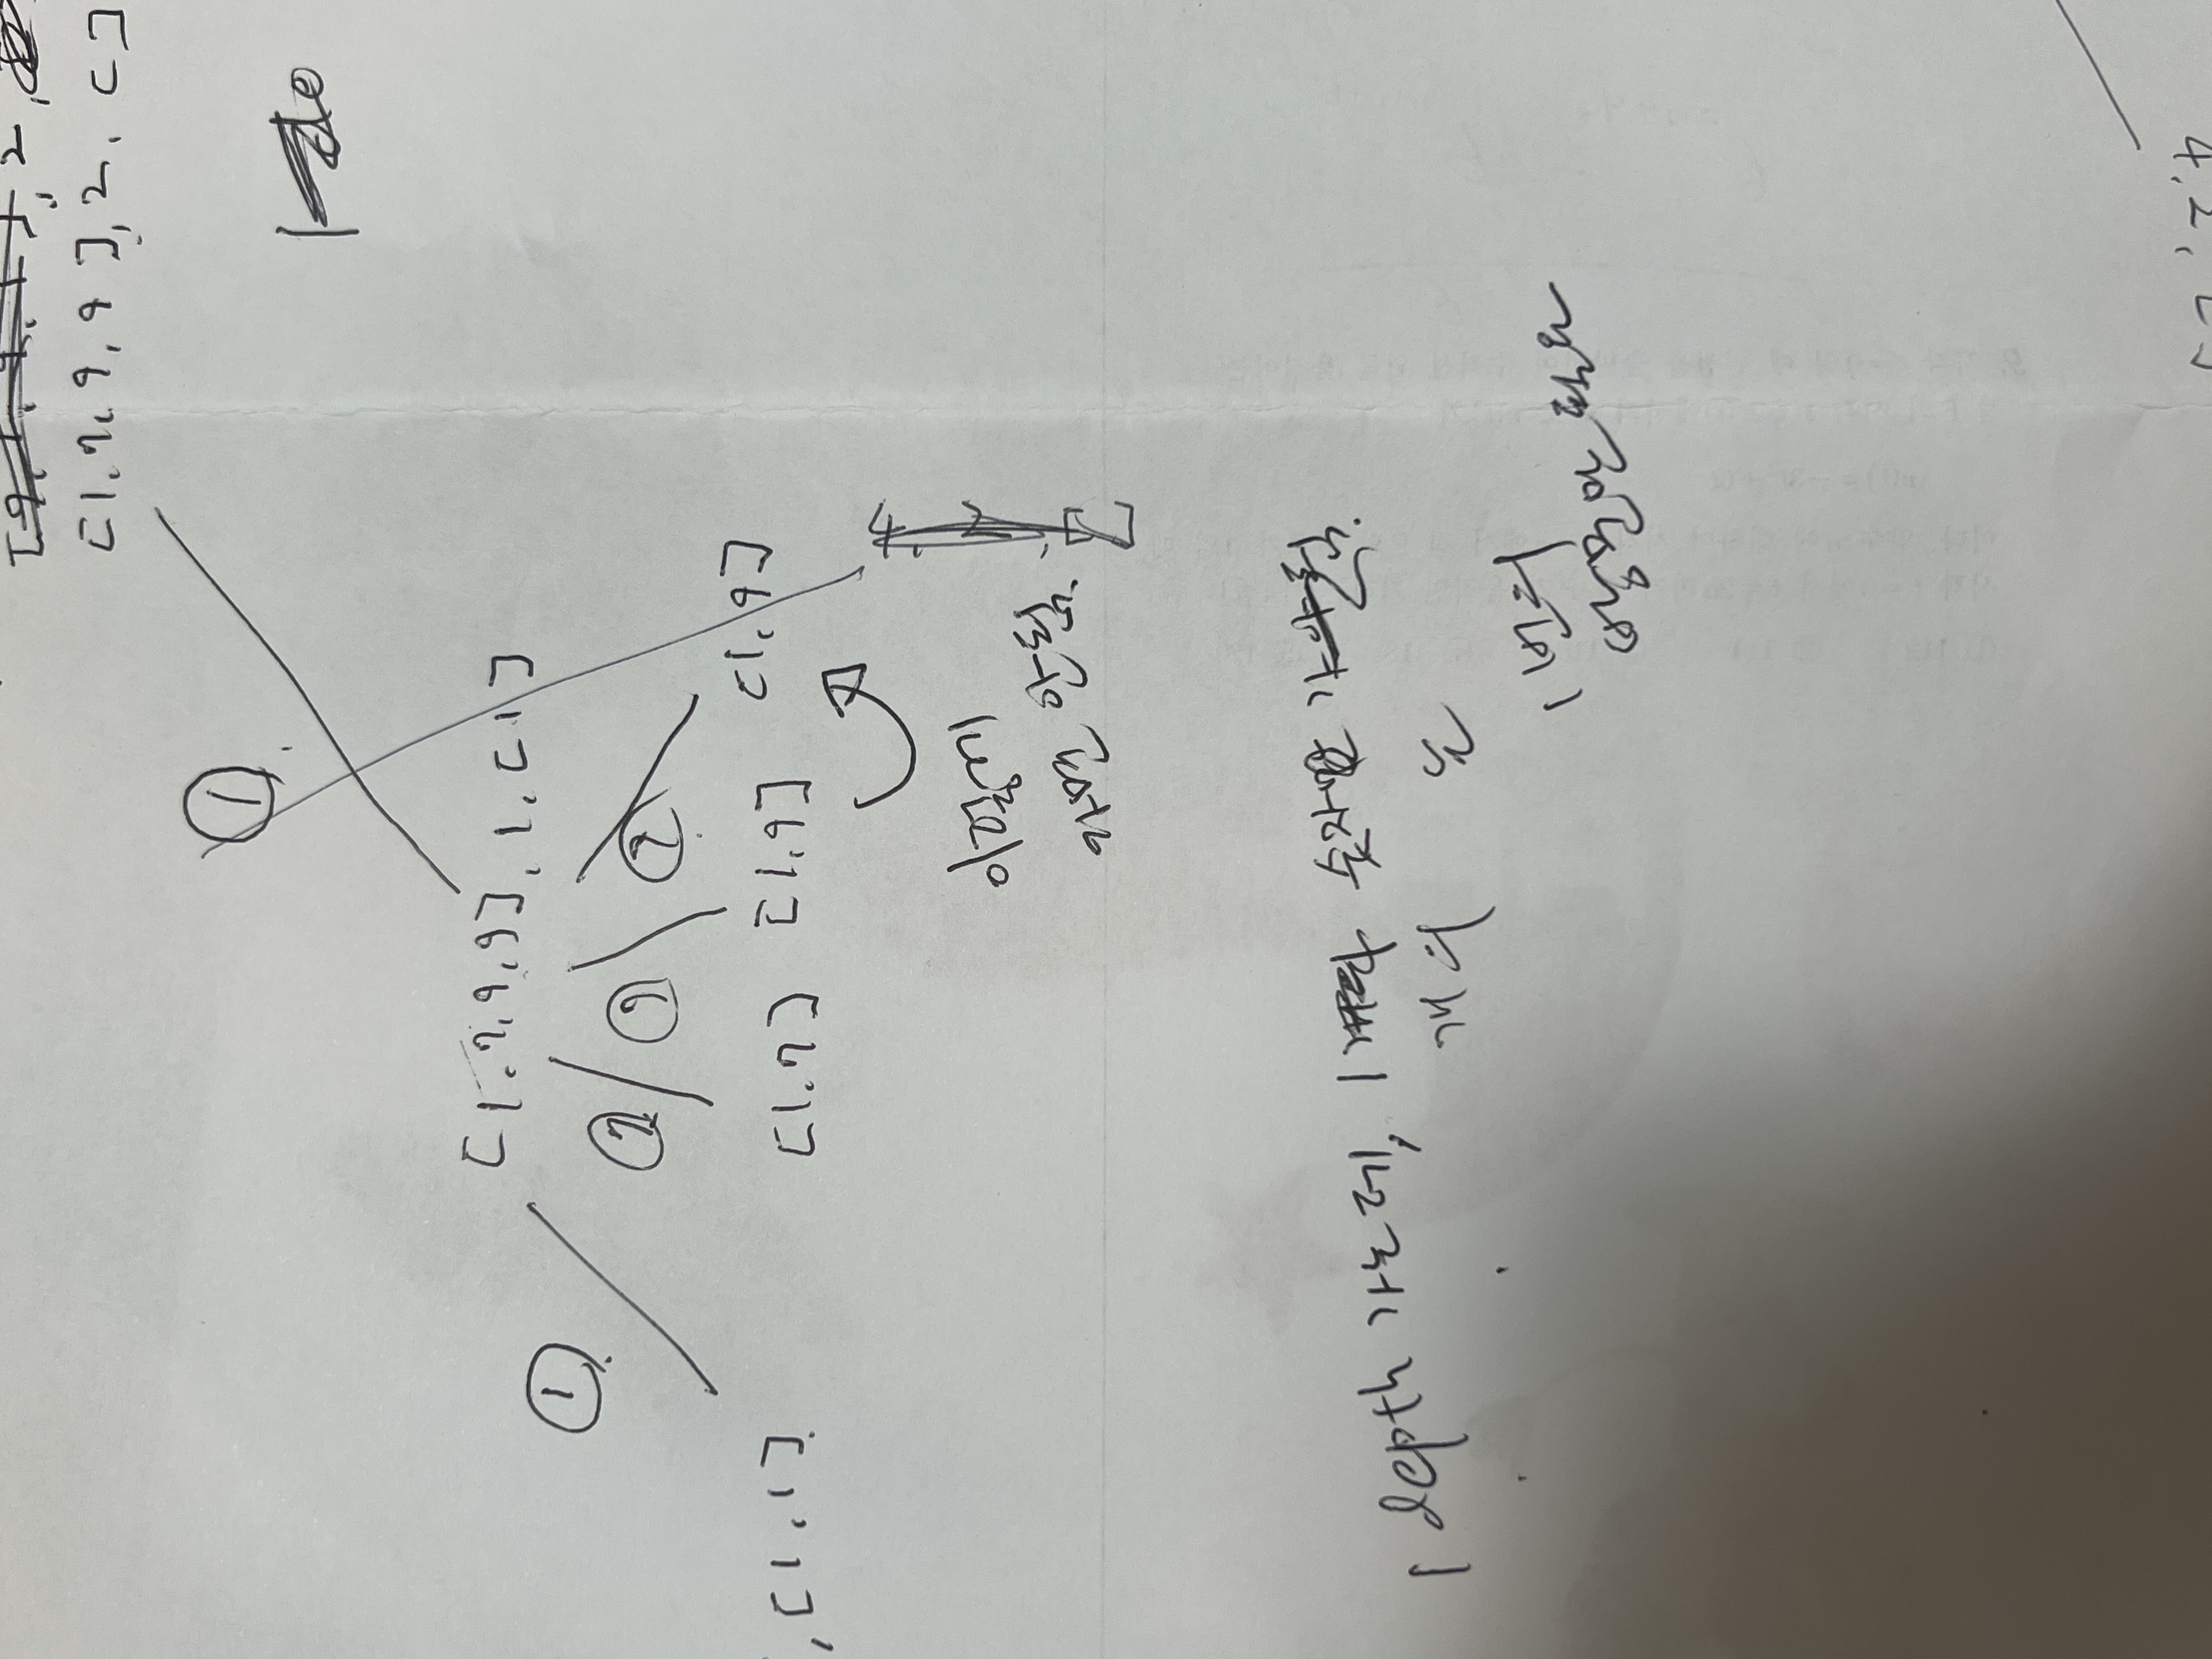 [1, 7, 9, 9], 2, []
①
[1, 7, 9, 9], 1, [1]
①
⑦ ⑨ ⑨
, [1, 1] [1, 7] [1, 9] [1, 9]
이렇게
가면 안됨.
1 depth 가는데, 1 숫자
개의 는
1번의
방문만 필요